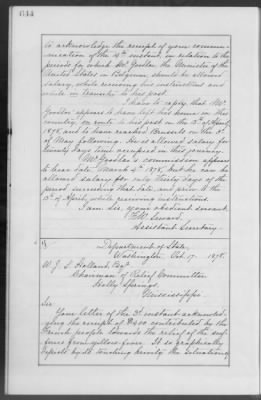 644
to acknowledge the receipt of your commu-
nication of the 4th instant, in relation to the
periods for which Mr. Goodloe the Minister of the
United States in Belgium, should be allowed
salary, while receiving his instructions and
while in transitu to his post.
I have to reply, that Mr.
Goodloe appears to have left his home in this
country, en route to his post on the 13th of April
1878, and to have reached Brussels on the 3d
of May following. He is allowed salary for
twenty days time occupied in this journey.
Mr. Goodloe's commission appears
to bear date March 4th 1878, but he can be
allowed salary for only thirty days of the
period succeeding that date, and prior to the
13th of April, while receiving instructions.
I am Sir, your obedient servant,
F. W. Seward,
Assistant Secretary.
Department of State,
Washington, Oct. 17 1878.
W. J. L. Holland Esqr.
Chairman of Relief Committee
Holly Springs,
Mississippi.
Sir
Your letter of the 3d instant acknowled-
ging the receipt of contributed by the
French people towards the relief of the suf-
ferers from yellow fever. It so graphically
depicts by its touching brevity the situation